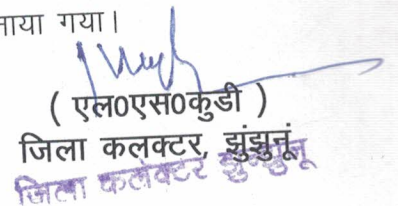 नाया गया।
( एल0एस0कुडी )
जिला कलक्टर, झुंझुनूं
जिला कलेक्टर झुन्झुनू